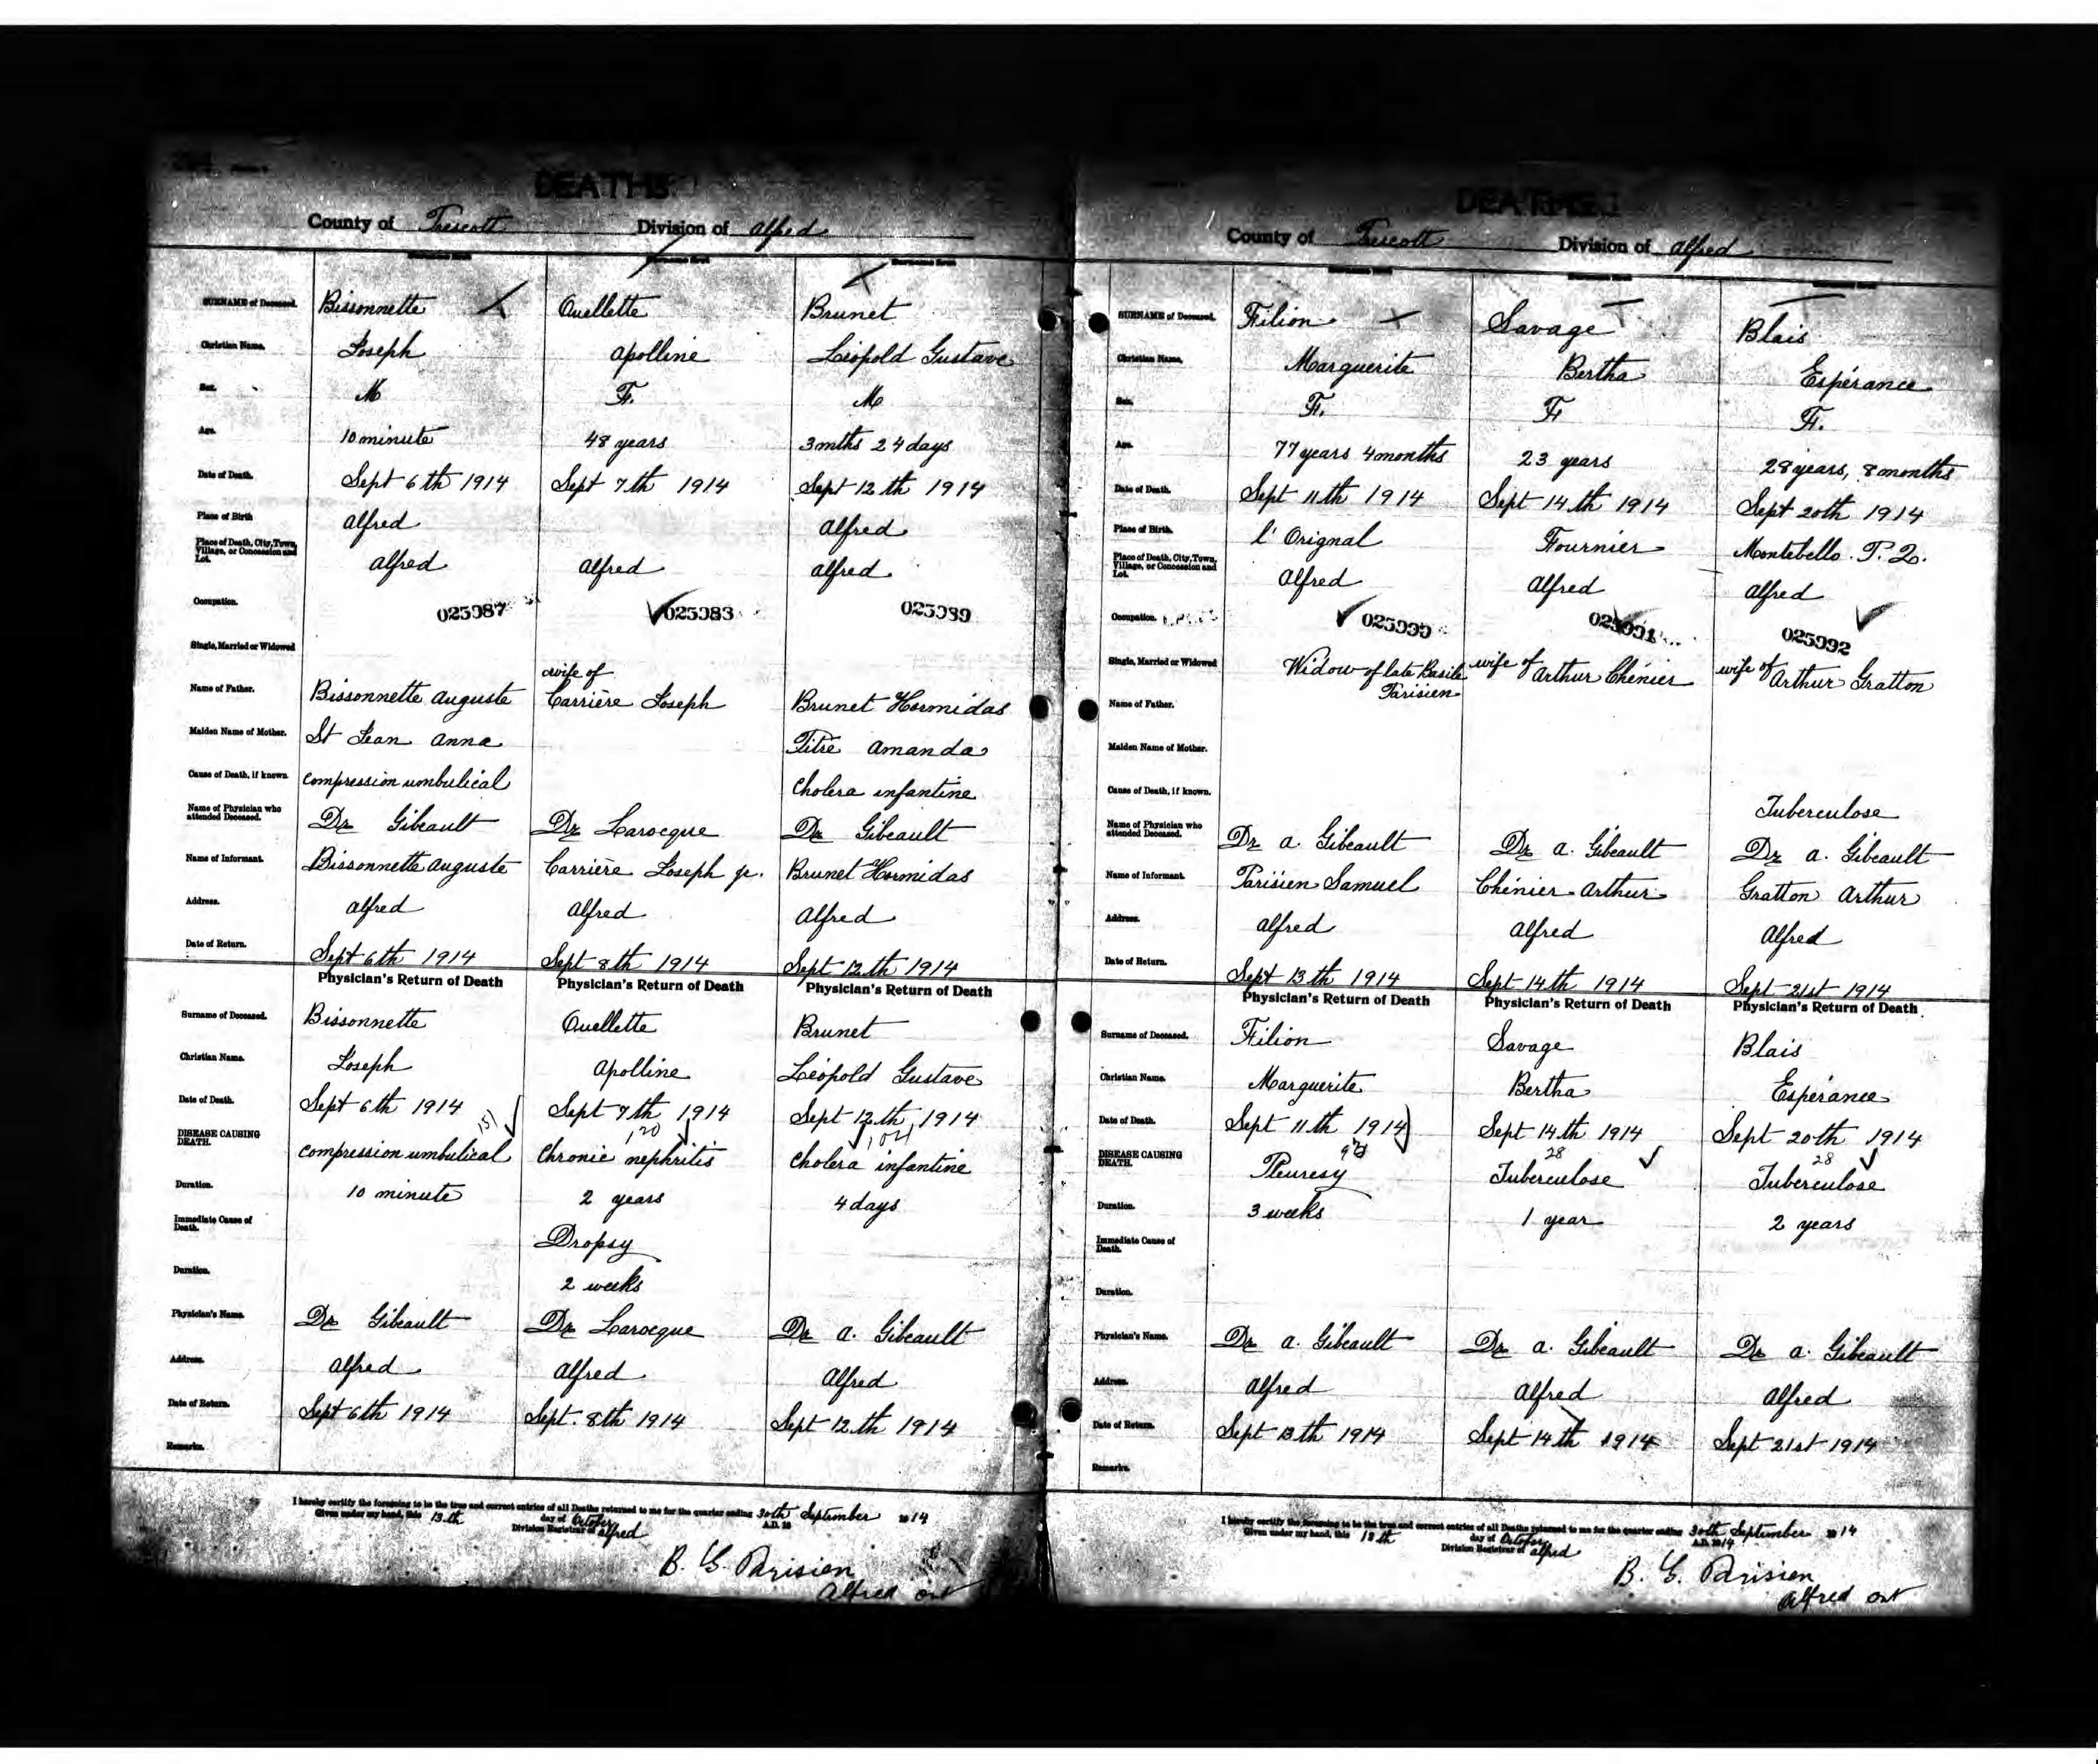 DEATHS.
County of Prescott Division of Alfred
SURNAME of Deceased. Bissonnette Ouellette Brunet
Christian Name. Joseph Apolline Léopold Gustave
Sex. M F. M
Age. 10 minute 48 years 3 mths 24 days
Date of Death. Sept 6th 1914 Sept 7th 1914 Sept 12th 1914
Place of Birth Alfred Alfred
Place of Death, City, Town, Village, or Concession and Lot. Alfred Alfred Alfred
Occupation. 025987 025983 025989
Single, Married or Widowed wife of
Name of Father. Bissonnette Auguste Carrière Joseph Brunet Hormidas
Maiden Name of Mother. St Jean Anna Titre Amanda
Cause of Death, if known. Compression umbulical Cholera infantine
Name of Physician who attended Deceased. Dr Gibeault Dr Larocque Dr Gibeault
Name of Informant. Bissonnette Auguste Carrière Joseph jr. Brunet Hormidas
Address. Alfred Alfred Alfred
Date of Return. Sept 6th 1914 Sept 8th 1914 Sept 12th 1914
Physician's Return of Death Physician's Return of Death Physician's Return of Death
Surname of Deceased. Bissonnette Ouellette Brunet
Christian Name. Joseph Apolline Léopold Gustave
Date of Death. Sept 6th 1914 Sept 7th 1914 Sept 12th 1914
151 120 102
DISEASE CAUSING DEATH. Compression umbulical Chronic nephritis Cholera infantine
Duration. 10 minute 2 years 4 days
Immediate Cause of Death. Dropsy
Duration. 2 weeks
Physician's Name. Dr Gibeault Dr Larocque Dr A. Gibeault
Address. Alfred Alfred Alfred
Date of Return. Sept 6th 1914 Sept. 8th 1914 Sept 12th 1914
Remarks.
I hereby certify the foregoing to be the true and correct entries of all Deaths returned to me for the quarter ending 30th September 1914
Given under my hand, this 13th day of October A.D. 19
Division Registrar of Alfred
B. G. Parisien
Alfred Ont
DEATHS.
County of Prescott Division of Alfred
SURNAME of Deceased. Filion Savage Blais
Christian Name. Marguerite Bertha Espérance
Sex. F. F. F.
Age. 77 years 4 months 23 years 28 years, 8 months
Date of Death. Sept 11th 1914 Sept 14th 1914 Sept 20th 1914
Place of Birth. l'Orignal Fournier Montebello P.Q.
Place of Death, City, Town, Village, or Concession and Lot. Alfred Alfred Alfred
Occupation. 025990 025991 025992
Single, Married or Widowed Widow of late Basile Parisien wife of Arthur Chénier wife of Arthur Gratton
Name of Father.
Maiden Name of Mother.
Cause of Death, if known. Tuberculose
Name of Physician who attended Deceased. Dr A. Gibeault Dr A. Gibeault Dr A. Gibeault
Name of Informant. Parisien Samuel Chénier Arthur Gratton Arthur
Address. Alfred Alfred Alfred
Date of Return. Sept 13th 1914 Sept 14th 1914 Sept 21st 1914
Physician's Return of Death Physician's Return of Death Physician's Return of Death
Surname of Deceased. Filion Savage Blais
Christian Name. Marguerite Bertha Espérance
Date of Death. Sept 11th 1914 Sept 14th 1914 Sept 20th 1914
28 28
DISEASE CAUSING DEATH. Pleuresy Tuberculose Tuberculose
Duration. 3 weeks 1 year 2 years
Immediate Cause of Death.
Duration.
Physician's Name. Dr A. Gibeault Dr A. Gibeault Dr A. Gibeault
Address. Alfred Alfred Alfred
Date of Return. Sept 13th 1914 Sept 14th 1914 Sept 21st 1914
Remarks.
I hereby certify the foregoing to be the true and correct entries of all Deaths returned to me for the quarter ending 30th September 1914
Given under my hand, this 13th day of October A.D. 1914
Division Registrar of Alfred
B. G. Parisien
Alfred Ont